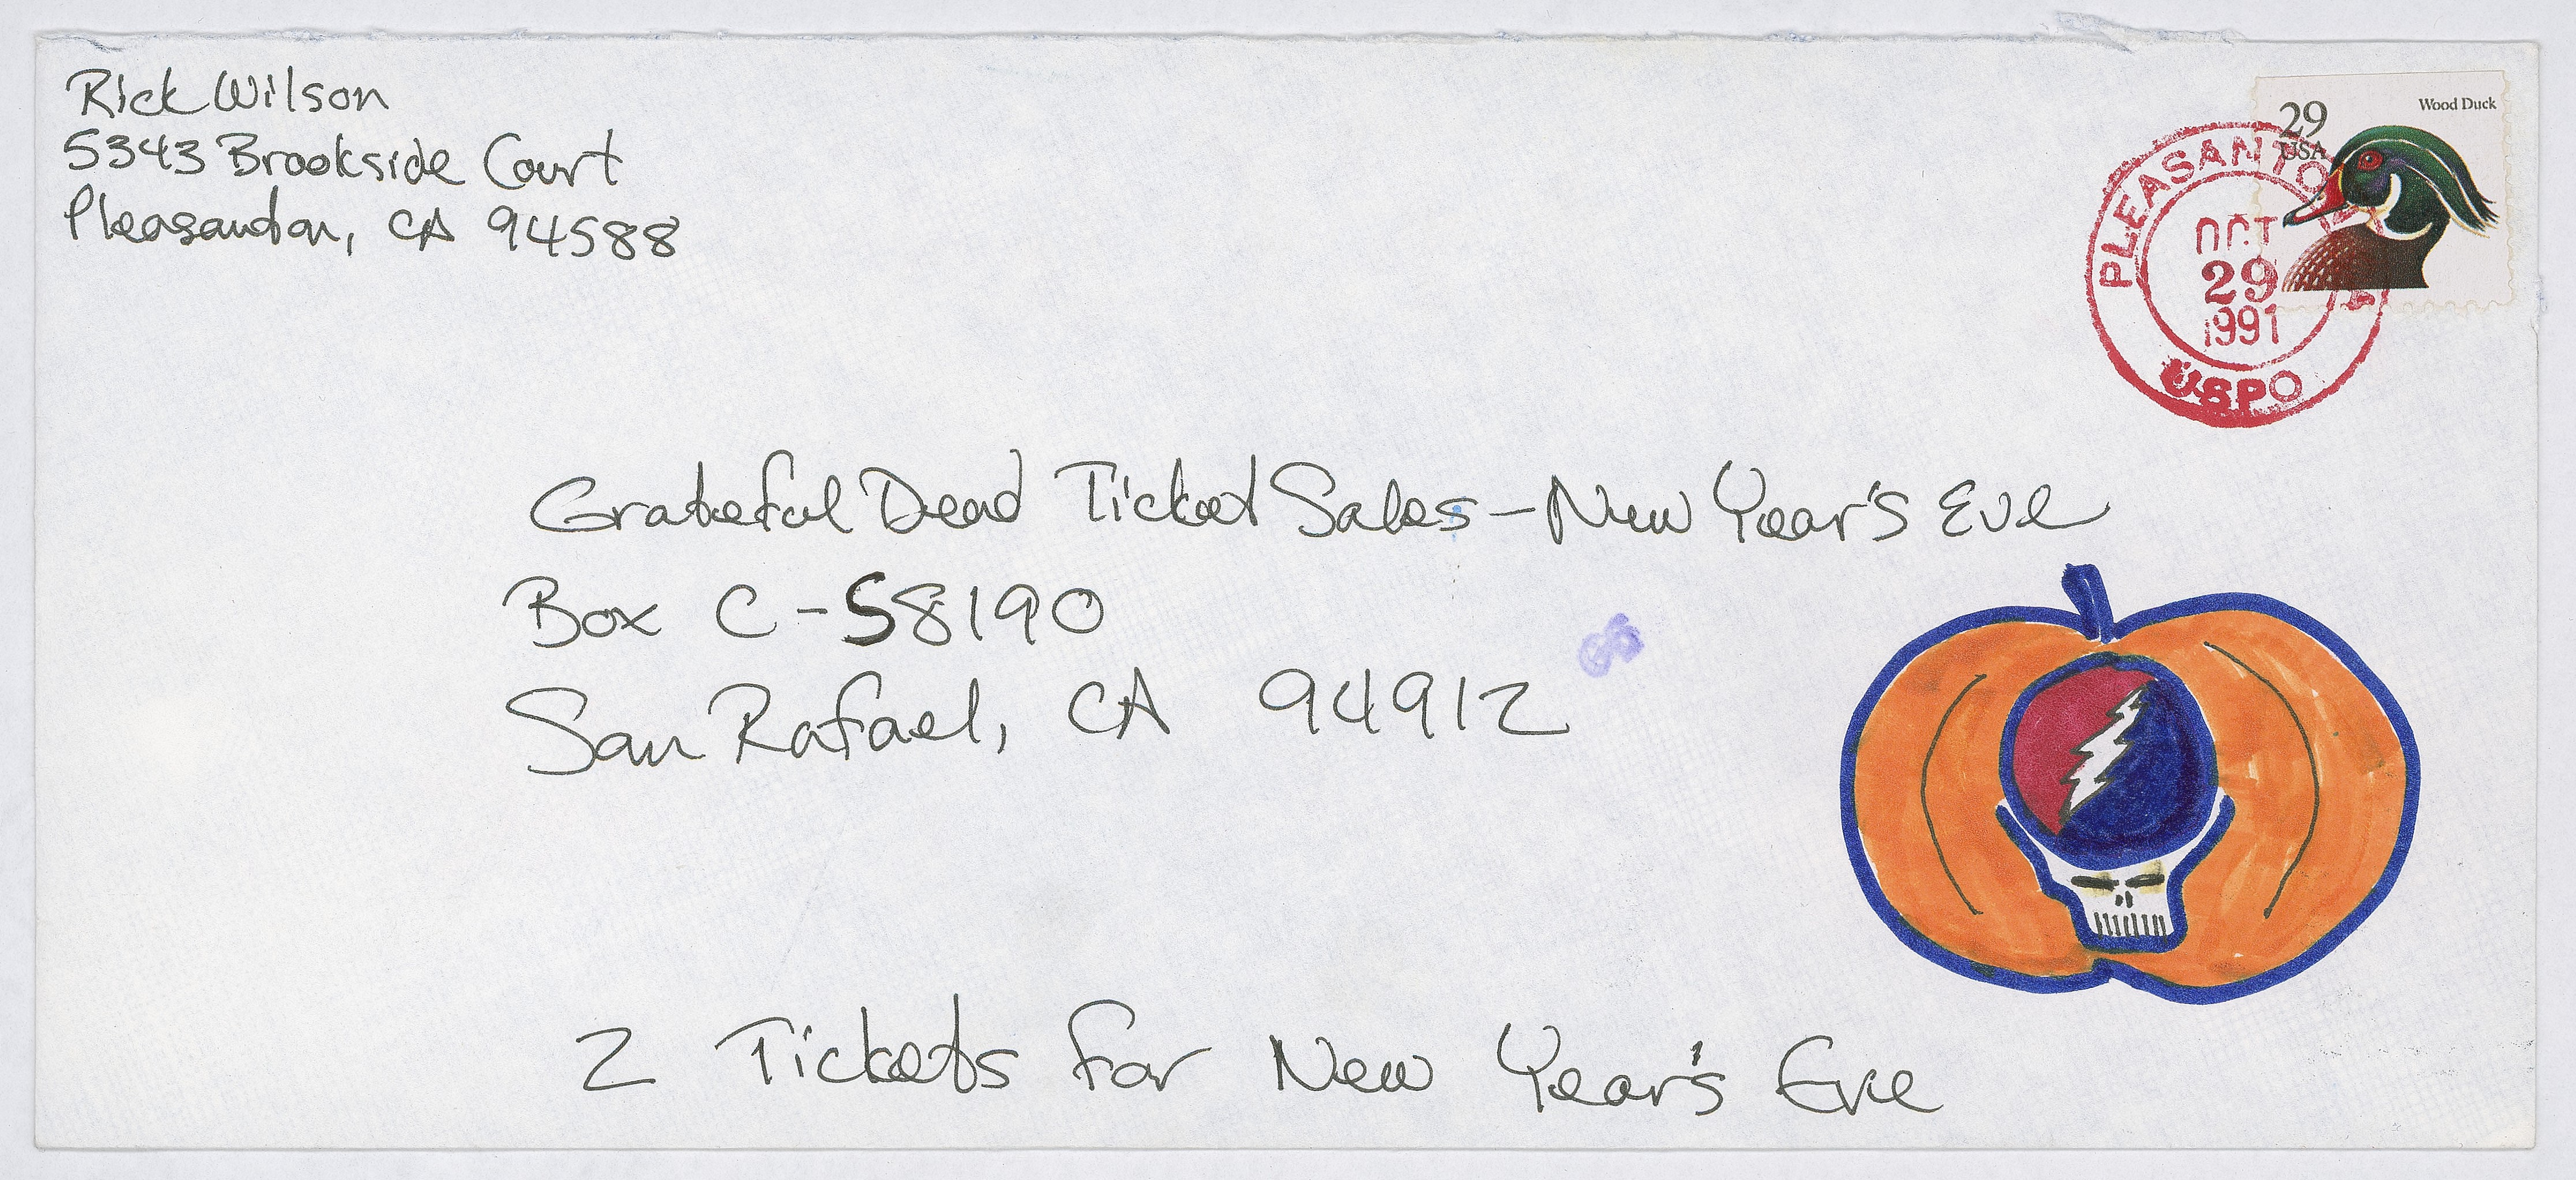 Rick Wilson
5343 Brookside Court
Pleasanton, CA 94588
29
USA
Wood Duck
PLEASANTON
OCT
29
1991
USPO
Grateful Dead Ticket Sales - New Year's Eve
Box C-58190
San Rafael, CA 94912
2 Tickets for New Year's Eve